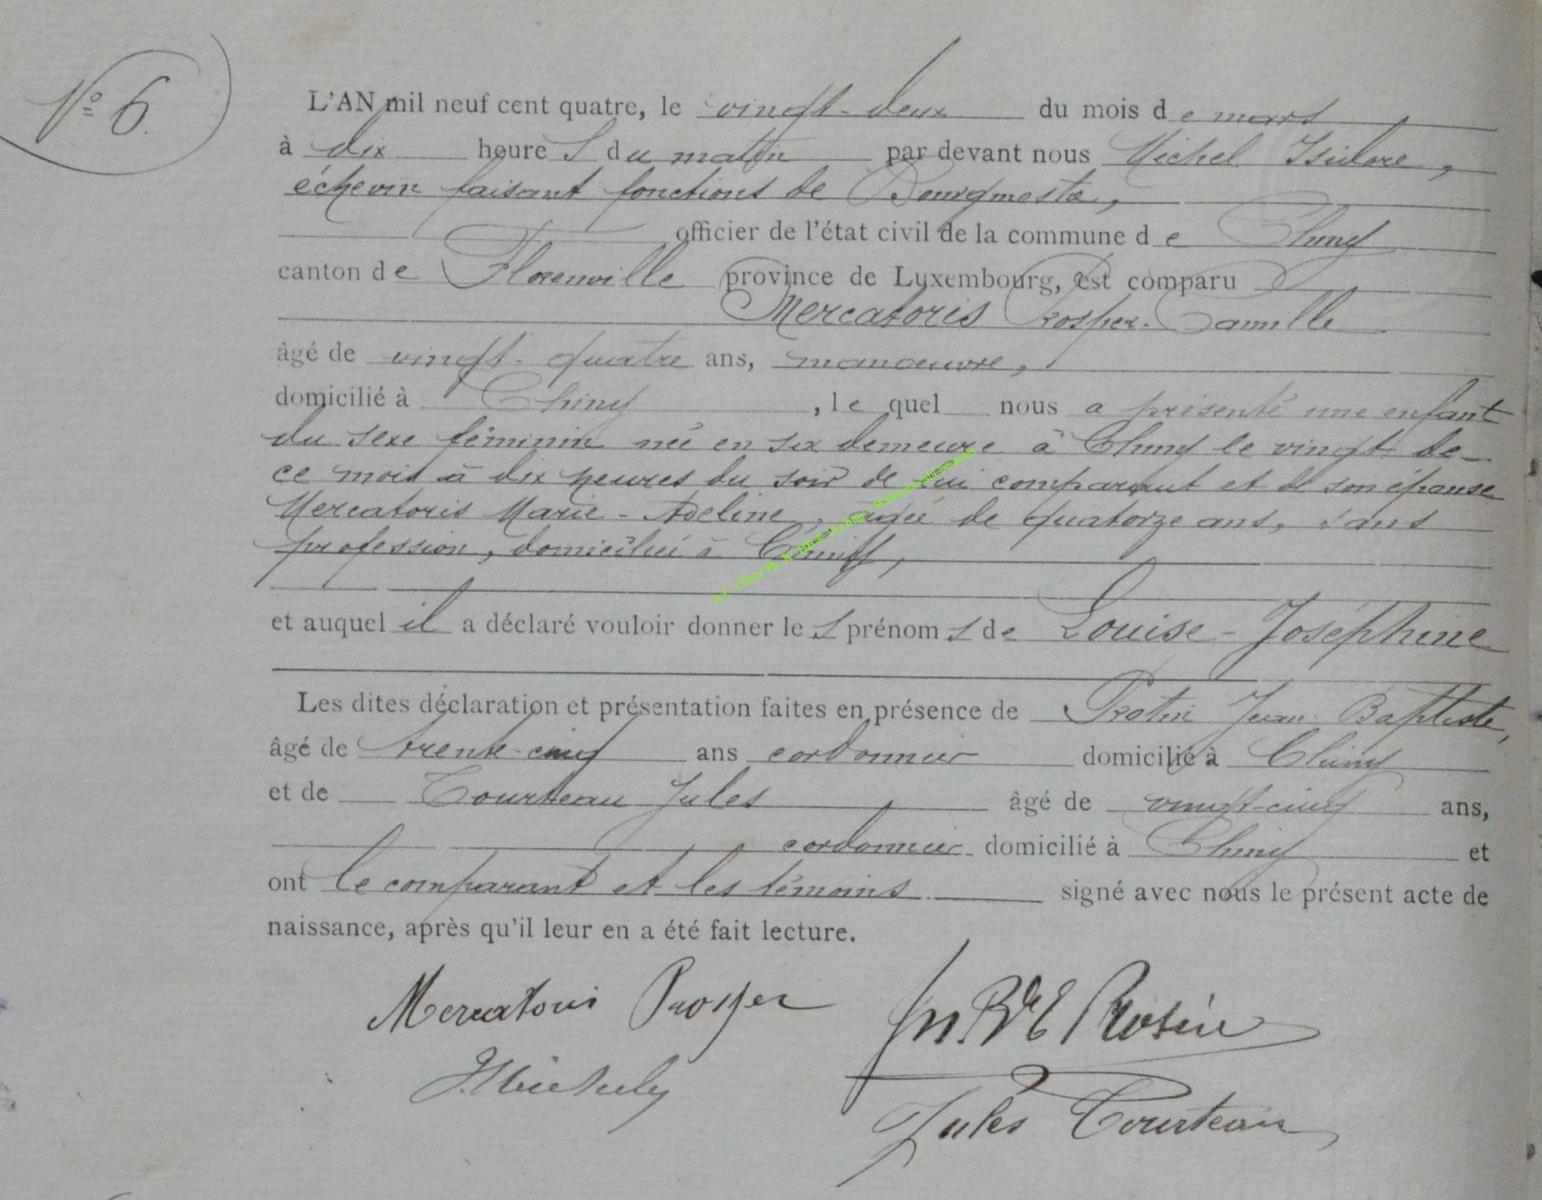 N° 6.
L'AN mil neuf cent quatre, le vingt-deux du mois de mars
à dix heures du matin par devant nous Michel Isidore,
échevin faisant fonctions de Bourgmestre,
officier de l'état civil de la commune de Chiny
canton de Florenville province de Luxembourg, est comparu
Mercatoris Prosper-Camille
âgé de vingt-quatre ans, manoeuvre,
domicilié à Chiny, le quel nous a présenté une enfant
du sexe féminin née en sa demeure à Chiny le vingt de
ce mois à dix heures du soir de lui comparant et de son épouse
Mercatoris Marie-Adeline, agée de quatorze ans, sans
profession, domiciliée à Chiny,
et auquel il a déclaré vouloir donner les prénoms de Louise-Joséphine
Les dites déclaration et présentation faites en présence de Jean Baptiste,
âgé de trente-cinq ans cordonnier domicilié à Chiny
et de Courteau Jules âgé de vingt-cinq ans,
cordonnier domicilié à Chiny et
ont le comparant et les témoins signé avec nous le présent acte de
naissance, après qu'il leur en a été fait lecture.
Mercatoris Prosper
Jules Courteau